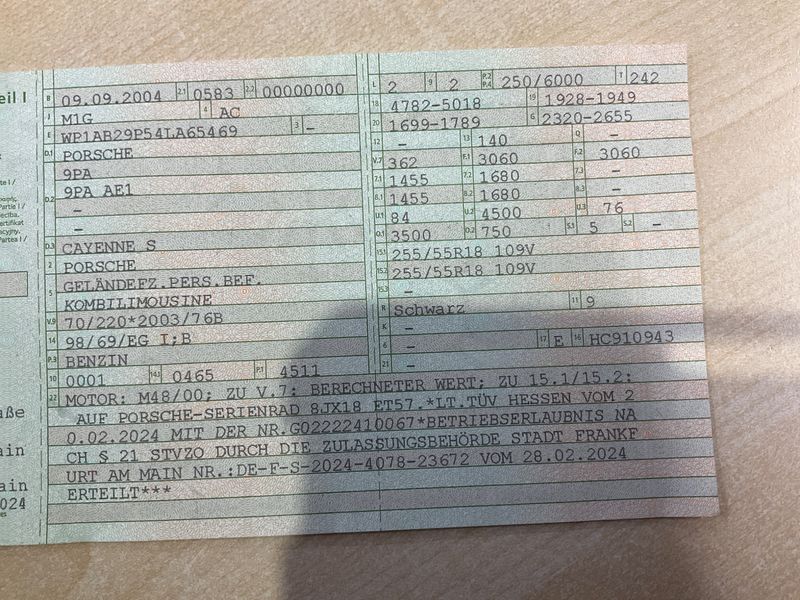 eil I
te I /
Partie I /
ertifikat
Partea I /
aße
ain
ain
024
B 09.09.2004 2.1 0583 2.2 00000000
J M1G 4 AC
E WP1AB29P54LA65469 3 –
D.1 PORSCHE
9PA
D.2 9PA AE1
–
–
D.3 CAYENNE S
2 PORSCHE
5 GELÄNDEFZ.PERS.BEF.
KOMBILIMOUSINE
V.9 70/220*2003/76B
14 98/69/EG I;B
P.3 BENZIN
10 0001 14.1 0465 P.1 4511
L 2 9 2 P.2 P.4 250/6000 T 242
18 4782-5018 19 1928-1949
20 1699-1789 G 2320-2655
12 – 13 140 Q –
V.7 362 F.1 3060 F.2 3060
7.1 1455 7.2 1680 7.3 –
8.1 1455 8.2 1680 8.3 –
U.1 84 U.2 4500 U.3 76
O.1 3500 O.2 750 S.1 5 S.2 –
15.1 255/55R18 109V
15.2 255/55R18 109V
15.3 –
R Schwarz 11 9
K –
6 – 17 E 16 HC910943
21 –
22 MOTOR: M48/00; ZU V.7: BERECHNETER WERT; ZU 15.1/15.2:
AUF PORSCHE-SERIENRAD 8JX18 ET57.*LT.TÜV HESSEN VOM 2
0.02.2024 MIT DER NR.G0222410067*BETRIEBSERLAUBNIS NA
CH § 21 STVZO DURCH DIE ZULASSUNGSBEHÖRDE STADT FRANKF
URT AM MAIN NR.:DE-F-S-2024-4078-23672 VOM 28.02.2024
ERTEILT***